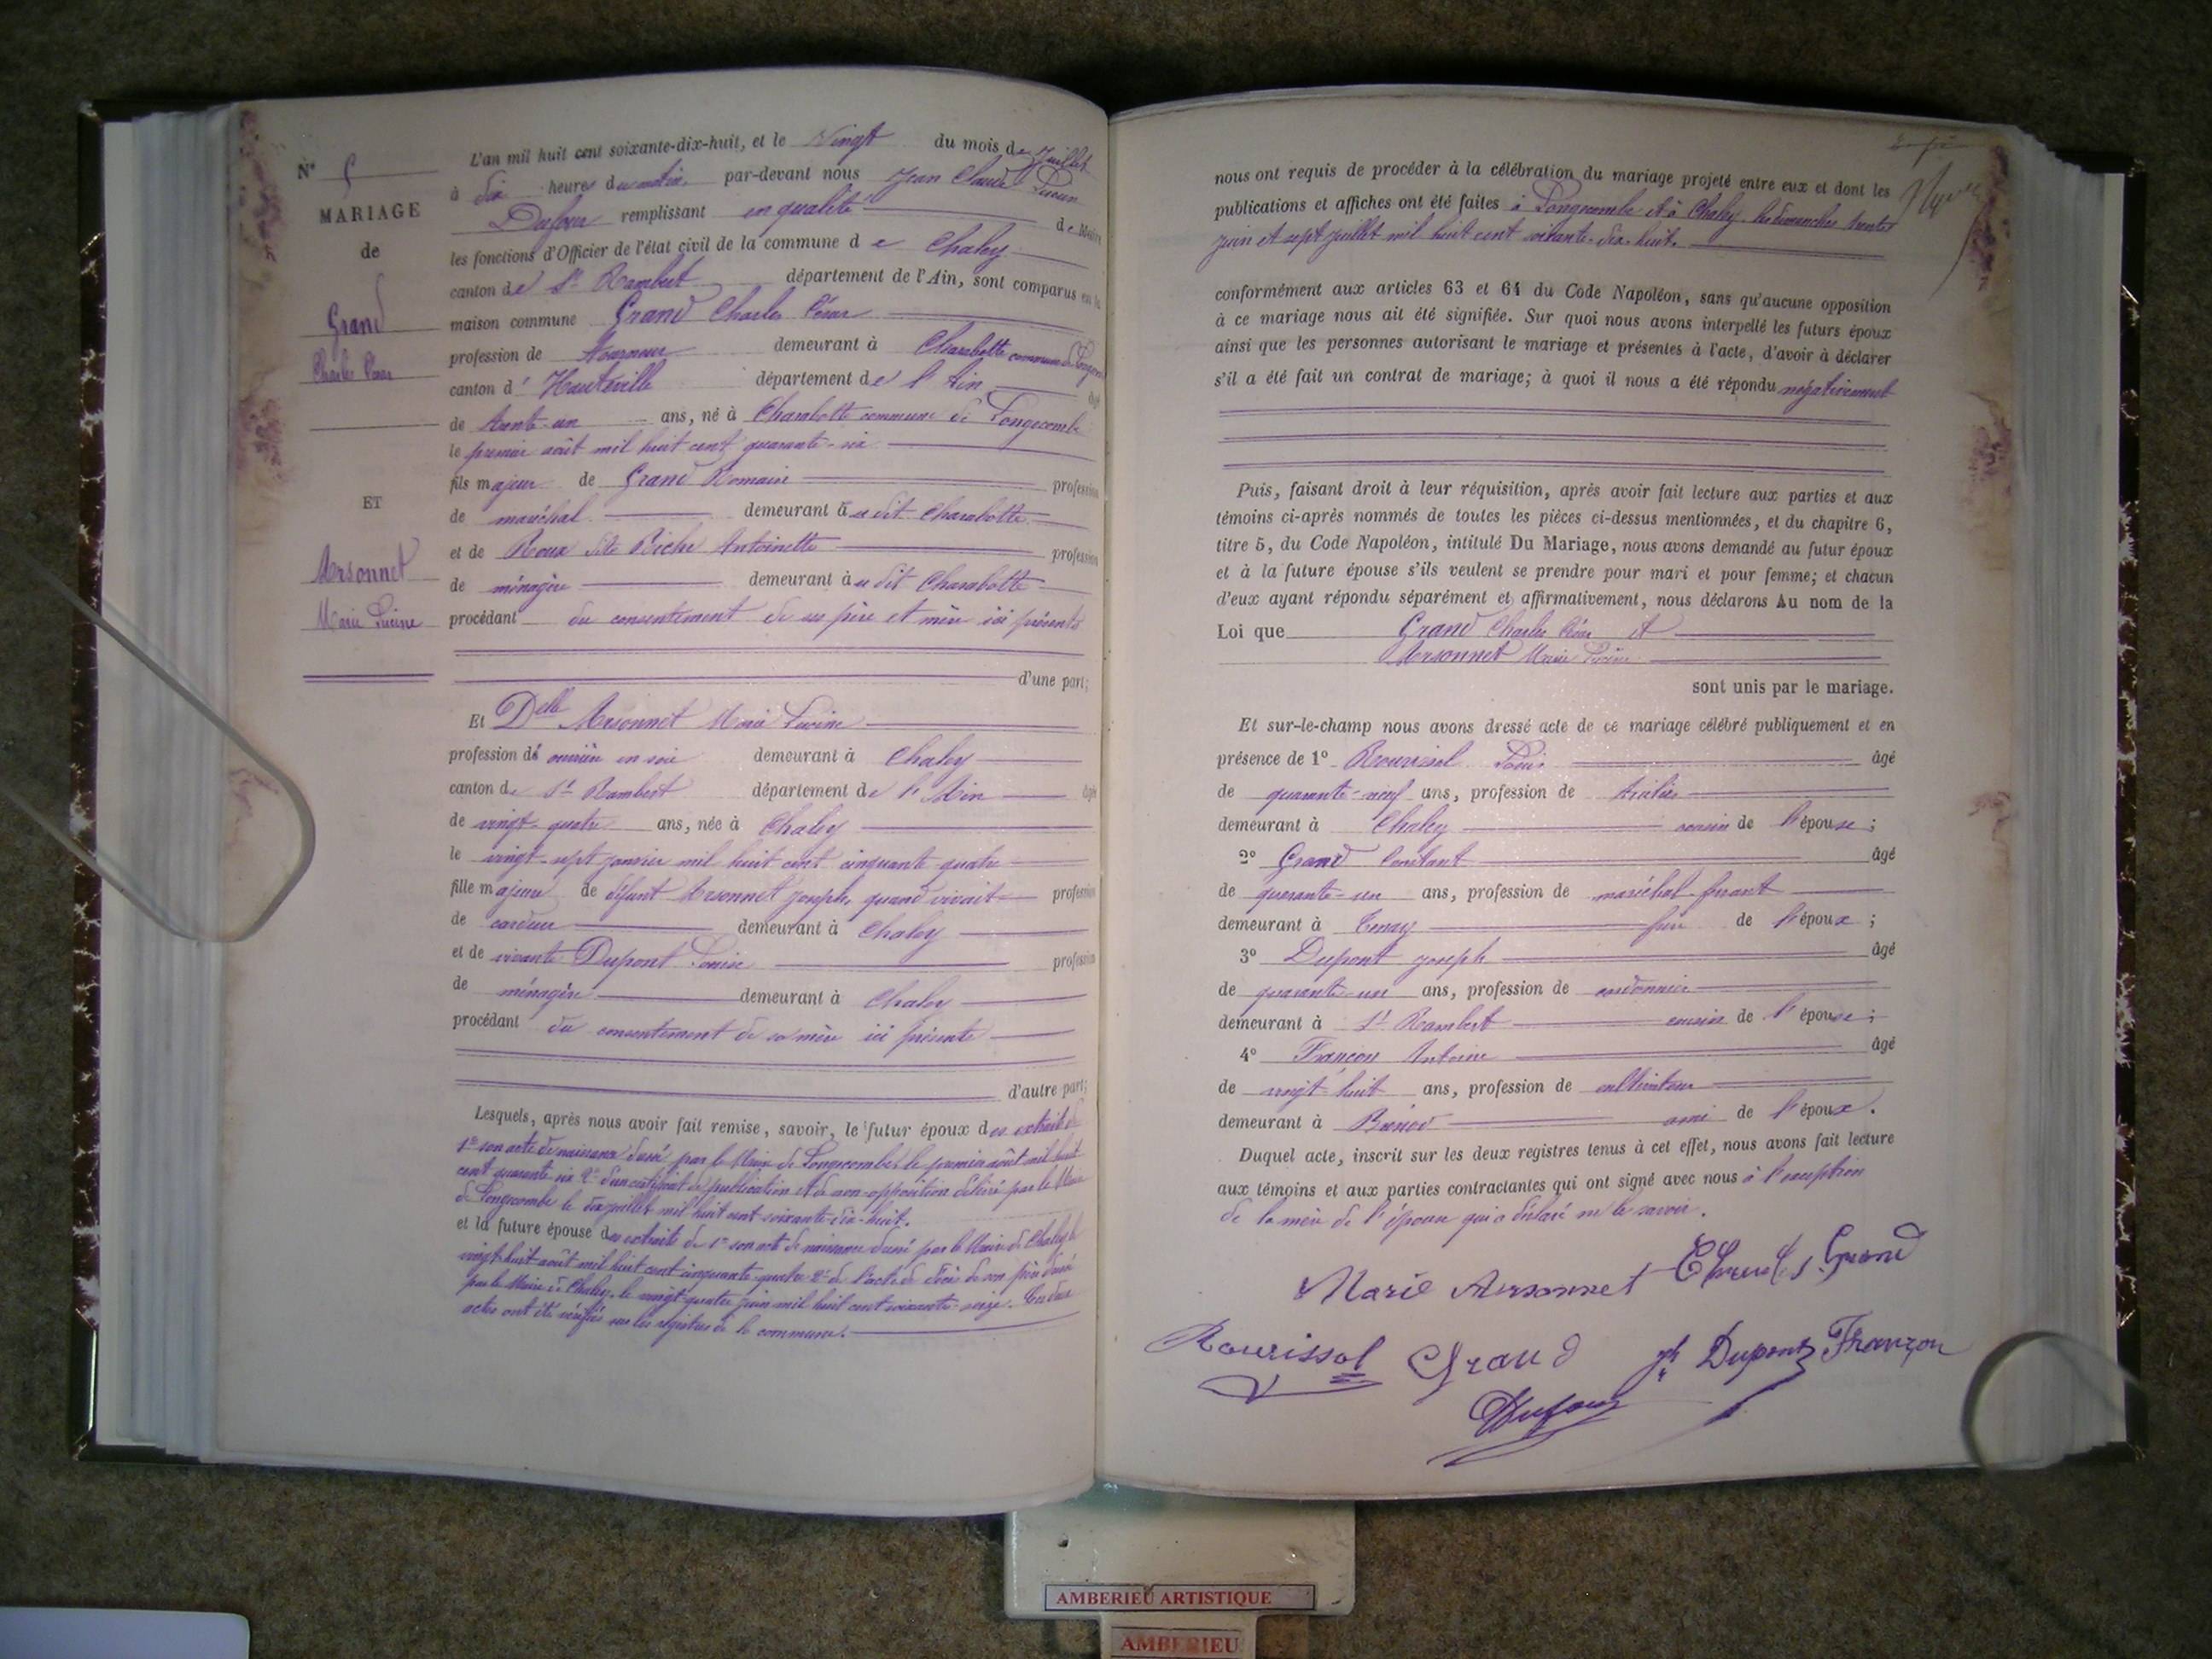 N° 5
MARIAGE
de
Grand
Charles César
ET
Arsonnet
Marie Lucine
L'an mil huit cent soixante-dix-huit, et le Vingt du mois de Juillet
à dix heures du matin, par-devant nous Jean Claude
Dufour remplissant en qualité de Maire
les fonctions d'Officier de l'état civil de la commune de Chaley
canton de St Rambert département de l'Ain, sont comparus en la
maison commune Grand Charles César
profession de demeurant à Charabotte commune de Longecombe
canton d' Hauteville département de l'Ain âgé
de trente-un ans, né à Charabotte commune de Longecombe
le premier août mil huit cent quarante-six
fils majeur de Grand Romain profession
de maréchal demeurant au dit Charabotte
et de Roux dite Biche Antoinette profession
de ménagère demeurant au dit Charabotte
procédant du consentement de ses père et mère ici présents
d'une part;
Et Delle Arsonnet Marie Lucine
profession d' ouvrière en soie demeurant à Chaley
canton de St Rambert département de l'Ain âgée
de vingt-quatre ans, née à Chaley
le vingt-sept janvier mil huit cent cinquante-quatre
fille majeure de défunt Arsonnet Joseph, quand vivait profession
de cardeur demeurant à Chaley
et de vivante Dupont Louise profession
de ménagère demeurant à Chaley
procédant du consentement de sa mère ici présente
d'autre part;
Lesquels, après nous avoir fait remise, savoir, le futur époux des extraits de
1° son acte de naissance dressé par le Maire de Longecombe le premier août mil huit
cent quarante-six 2° d'un certificat de publication et de non-opposition délivré par le Maire
de Longecombe le dix juillet mil huit cent soixante-dix-huit.
et la future épouse des extraits de 1° son acte de naissance dressé par le Maire de Chaley le
vingt-huit août mil huit cent cinquante-quatre 2° de l'acte de décès de son père dressé
par le Maire de Chaley, le vingt-quatre juin mil huit cent soixante-seize. Ces deux
actes ont été vérifiés sur les registres de la commune.
nous ont requis de procéder à la célébration du mariage projeté entre eux et dont les
publications et affiches ont été faites à Longecombe et à Chaley les dimanches trente
juin et sept juillet mil huit cent soixante-dix-huit.
conformément aux articles 63 et 64 du Code Napoléon, sans qu'aucune opposition
à ce mariage nous ait été signifiée. Sur quoi nous avons interpellé les futurs époux
ainsi que les personnes autorisant le mariage et présentes à l'acte, d'avoir à déclarer
s'il a été fait un contrat de mariage; à quoi il nous a été répondu négativement
Puis, faisant droit à leur réquisition, après avoir fait lecture aux parties et aux
témoins ci-après nommés de toutes les pièces ci-dessus mentionnées, et du chapitre 6,
titre 5, du Code Napoléon, intitulé Du Mariage, nous avons demandé au futur époux
et à la future épouse s'ils veulent se prendre pour mari et pour femme; et chacun
d'eux ayant répondu séparément et affirmativement, nous déclarons Au nom de la
Loi que Grand Charles César et
Arsonnet Marie Lucine
sont unis par le mariage.
Et sur-le-champ nous avons dressé acte de ce mariage célébré publiquement et en
présence de 1° Rourissol Louis âgé
de quarante-neuf ans, profession de
demeurant à Chaley cousin de l'épouse;
2° Grand Constant âgé
de quarante-un ans, profession de maréchal-ferrant
demeurant à Tenay frère de l'époux;
3° Dupont Joseph âgé
de quarante-un ans, profession de cordonnier
demeurant à St Rambert cousin de l'épouse;
4° Françon Antoine âgé
de vingt-huit ans, profession de cultivateur
demeurant à Brénod ami de l'époux.
Duquel acte, inscrit sur les deux registres tenus à cet effet, nous avons fait lecture
aux témoins et aux parties contractantes qui ont signé avec nous à l'exception
de la mère de l'époux qui a déclaré ne le savoir.
Marie Arsonnet Charles Grand
Rourissol Grand Jh Dupont Françon
Dufour
AMBERIEU ARTISTIQUE
AMBERIEU